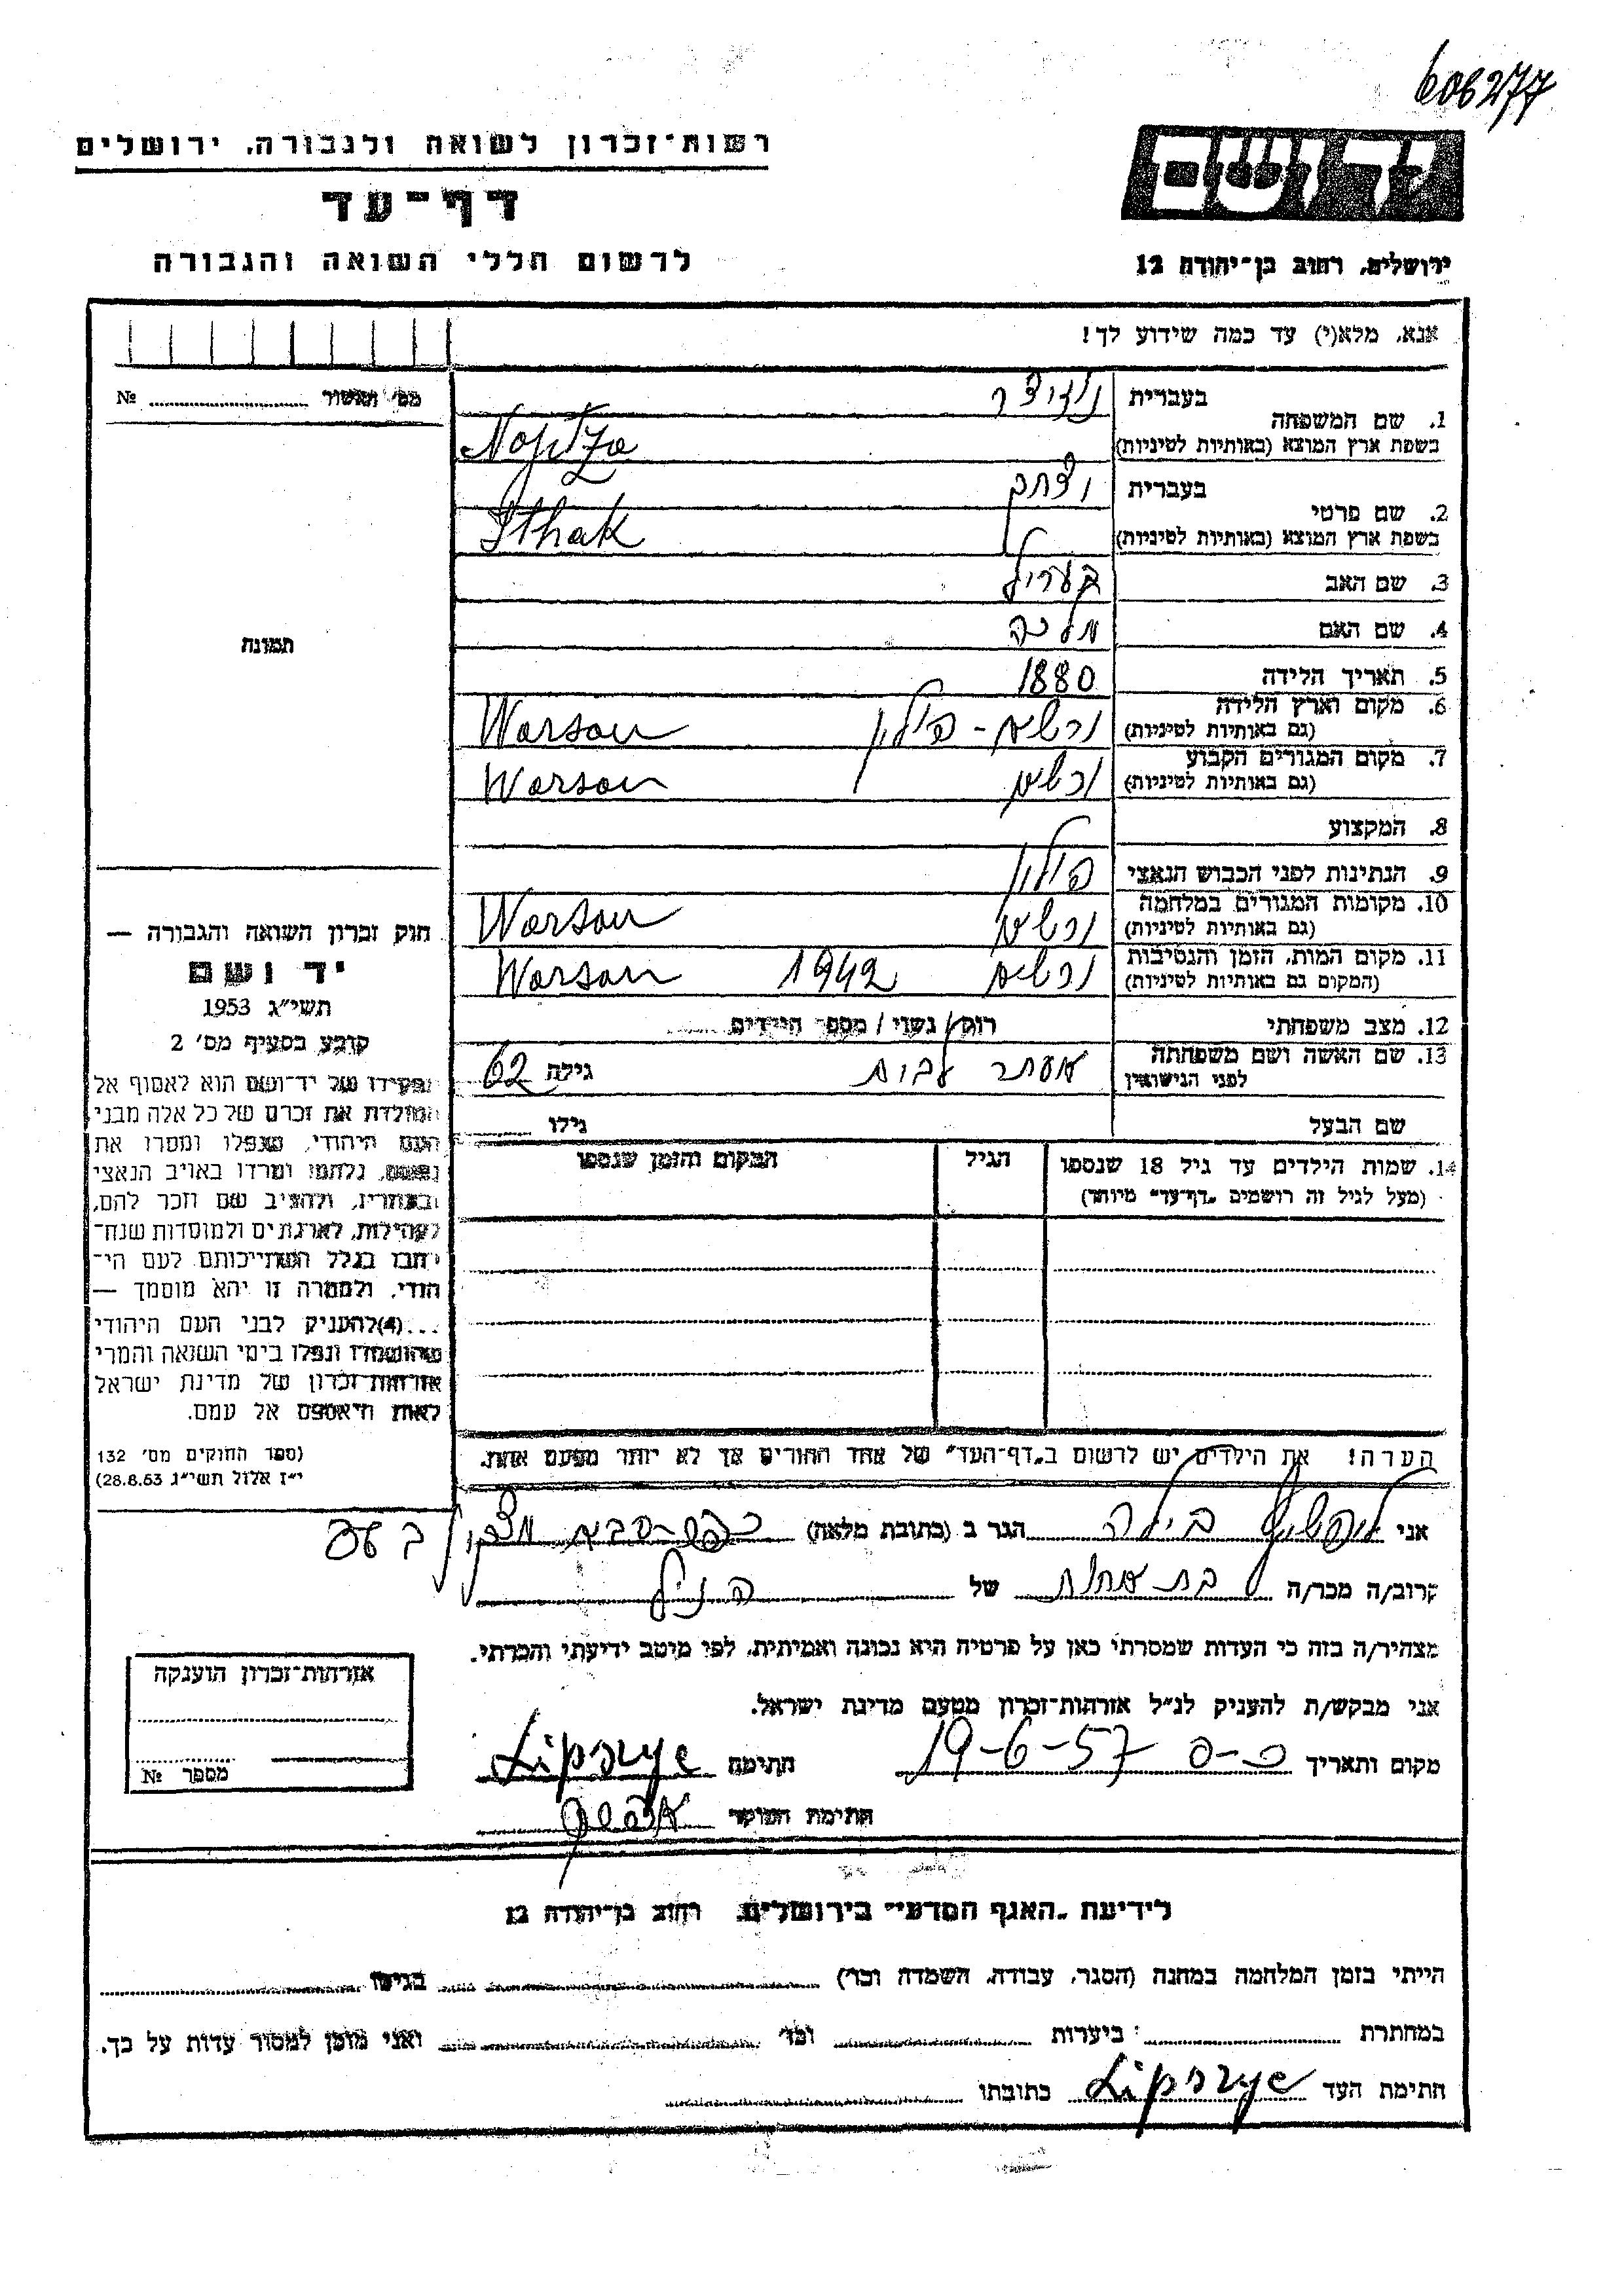 606277
יד ושם
רשות־זכרון לשואה ולגבורה, ירושלים
דף־עד
לרשום חללי השואה והגבורה
ירושלים, רחוב בן־יהודה 12
אנא, מלא(י) עד כמה שידוע לך!
מס' תאשור № 
1. שם המשפחה
בעברית
בשפת ארץ המוצא (באותיות לטיניות)
2. שם פרטי
בעברית יצחק
בשפת ארץ המוצא (באותיות לטיניות) Ithak
3. שם האב
4. שם האם מלכה
5. תאריך הלידה 1880
6. מקום וארץ הלידה ורשא - פולין Warsau
(גם באותיות לטיניות)
7. מקום המגורים הקבוע ורשא Warsau
(גם באותיות לטיניות)
8. המקצוע
9. הנתינות לפני הכבוש הנאצי פולין
10. מקומות המגורים במלחמה ורשא Warsau
(גם באותיות לטיניות)
11. מקום המות, הזמן והנסיבות ורשא 1942 Warsau
(המקום גם באותיות לטיניות)
12. מצב משפחתי רוק/ נשוי / מספר הילדים
13. שם האשה ושם משפחתה אסתר גילה 62
לפני הנישואין
שם הבעל גילו
14. שמות הילדים עד גיל 18 שנספו הגיל המקום והזמן שנספו
(מעל לגיל זה רושמים „דף־עד" מיוחד)
הערה! את הילדים יש לרשום ב„דף־העד" של אחד ההורים אך לא יותר מפעם אחת.
תמונה
חוק זכרון השואה והגבורה —
יד ושם
תשי"ג 1953
קובע בסעיף מס' 2
תפקידו של יד־ושם הוא לאסוף אל
המולדת את זכרם של כל אלה מבני
העם היהודי, שנפלו ומסרו את
נפשם, נלחמו ומרדו באויב הנאצי
ובעוזריו, ולהציב שם וזכר להם,
לקהילות, לארגונים ולמוסדות שנח־
רבו בגלל השתייכותם לעם הי־
הודי, ולמטרה זו יהא מוסמך —
...(4)להעניק לבני העם היהודי
שהושמדו ונפלו בימי השואה והמרי
אזרחות־זכרון של מדינת ישראל
לאות היאספם אל עמם.
(ספר החוקים מס' 132
י"ז אלול תשי"ג 28.8.53)
אני ביילה הגר ב (כתובת מלאה) כפר-סבא
קרוב/ה מכר/ה בת אחות של הניל
מצהיר/ה בזה כי העדות שמסרתי כאן על פרטיה היא נכונה ואמיתית, לפי מיטב ידיעתי והכרתי.
אני מבקש/ת להעניק לנ"ל אזרחות־זכרון מטעם מדינת ישראל.
מקום ותאריך כ-ס 19-6-57 חתימה Lipszyc
חתימת הפוקד
אזרחות־זכרון הוענקה
מספר №
לידיעת „האגף המדעי" בירושלים, רחוב בן־יהודה 12
הייתי בזמן המלחמה במחנה (הסגר, עבודה, השמדה וכו') בגיטו
במחתרת ביערות וכו' ואני מוכן למסור עדות על כך.
חתימת העד Lipszyc כתובתו